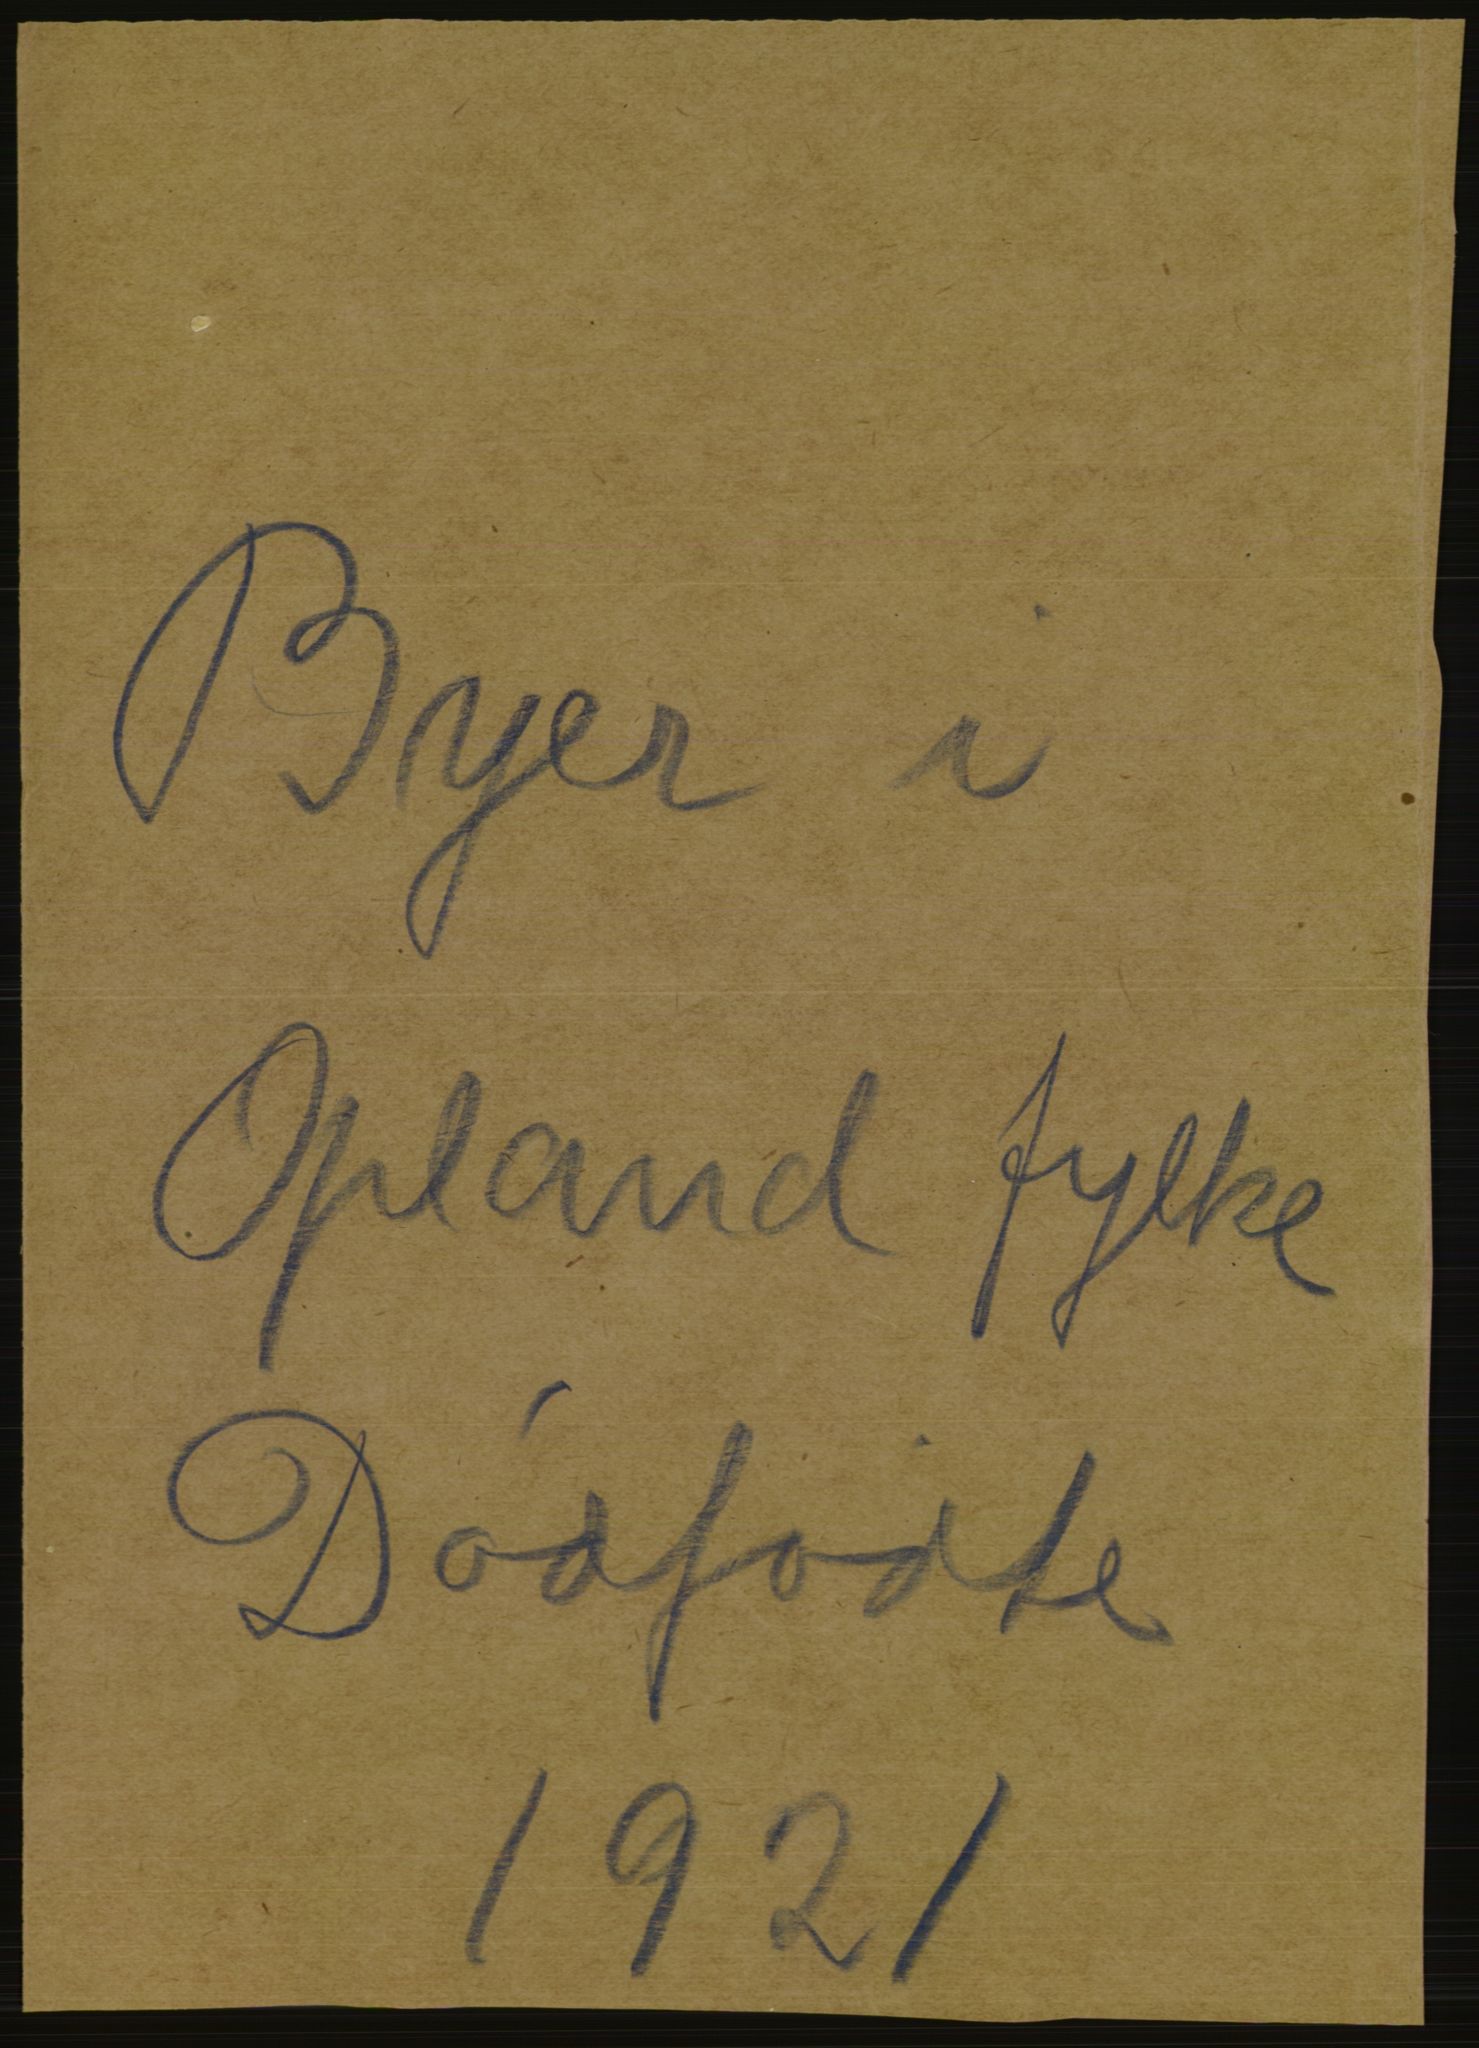 Byer i
Opland fylke
Dódfódte
1921